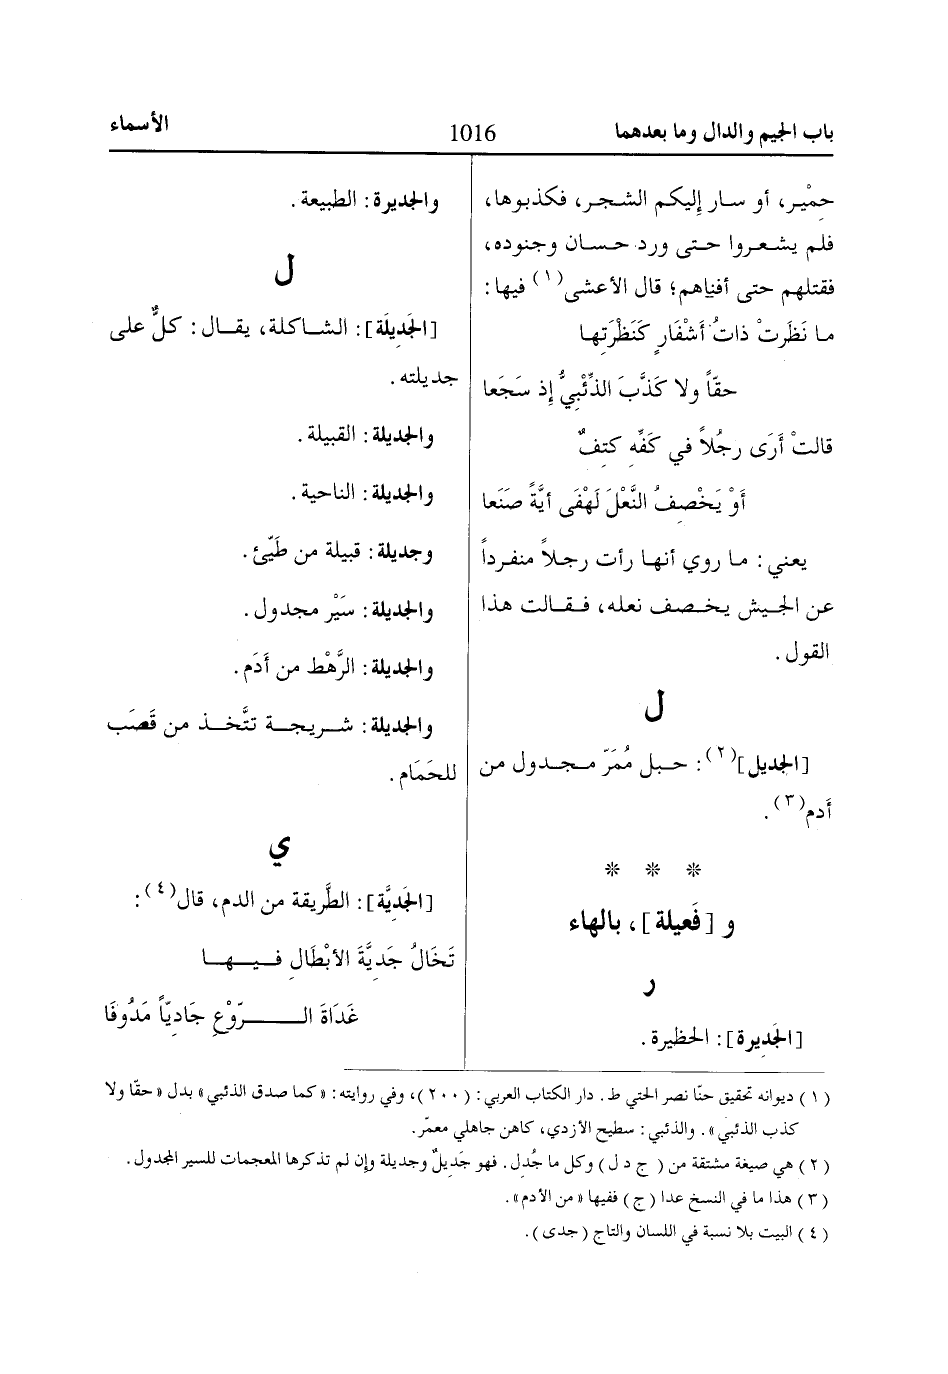 باب الجيم والدال وما بعدهما 1016 الأسماء
حِمْير، أو سار إليكم الشجر، فكذبوها،
فلم يشعروا حتى ورد حسان وجنوده،
فقتلهم حتى أفناهم؛ قال الأعشى(١) فيها:
ما نَظَرتْ ذاتُ أشْفارٍ كَنَظْرَتِها
حقّاً ولا كَذَّبَ الذِّئْبِيُّ إذ سَجَعا
قالتْ أرَى رجُلاً في كَفِّهِ كتِفٌ
أوْ يَخْصِفُ النَّعْلَ لَهْفَى أيَّةً صَنَعا
يعني: ما روي أنها رأت رجلاً منفرداً
عن الجيش يخصف نعله، فقالت هذا
القول.
ل
[الجديل](٢): حبل مُمَرّ مجدول من
أدم(٣).
* * *
و [فَعيلة]، بالهاء
ر
[الجَدِيرة]: الحظيرة.
والجديرة: الطبيعة.
ل
[الجَدِيلَة]: الشاكلة، يقال: كلٌّ على
جديلته.
والجديلة: القبيلة.
والجديلة: الناحية.
وجديلة: قبيلة من طَيِّئ.
والجديلة: سَيْر مجدول.
والجديلة: الرَّهْط من أَدَم.
والجديلة: شريجة تتَّخذ من قَصَب
للحَمَام.
ي
[الجَدِيَّة]: الطَّريقة من الدم، قال(٤):
تَخَالُ جَدِيَّةَ الأبْطَالِ فيها
غَدَاةَ الرّوْعِ جَادِيّاً مَدُوفَا
(١) ديوانه تحقيق حنّا نصر الحتي ط. دار الكتاب العربي: (٢٠٠)، وفي روايته: «كما صدق الذئبي» بدل «حقّا ولا
كذب الذئبي». والذئبي: سطيح الأزدي، كاهن جاهلي معمّر.
(٢) هي صيغة مشتقة من (ج د ل) وكل ما جُدِل. فهو جَدِيلٌ وجديلة وإن لم تذكرها المعجمات للسير المجدول.
(٣) هذا ما في النسخ عدا (ج) ففيها «من الأدم».
(٤) البيت بلا نسبة في اللسان والتاج (جدى).